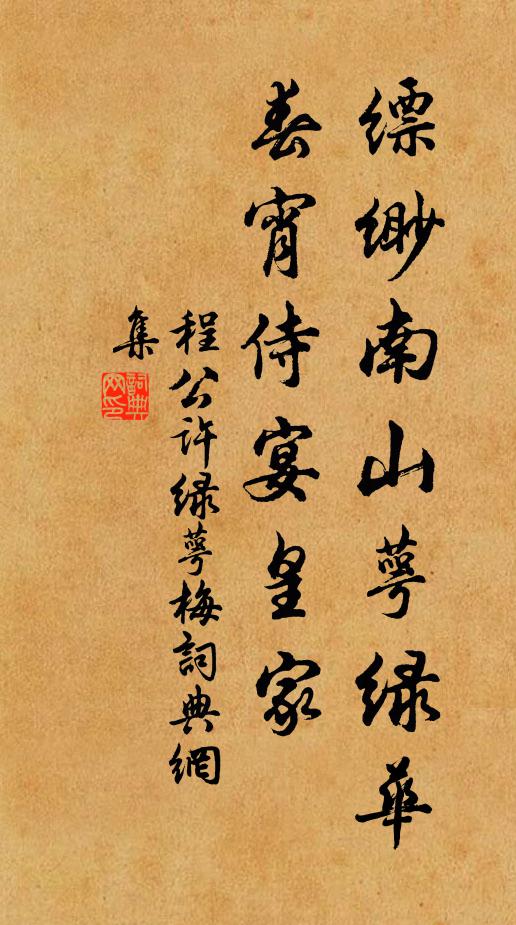 缥缈南山萼绿华
春宵侍宴皇家
程公许绿萼梅詞典網
集
詞典
网印